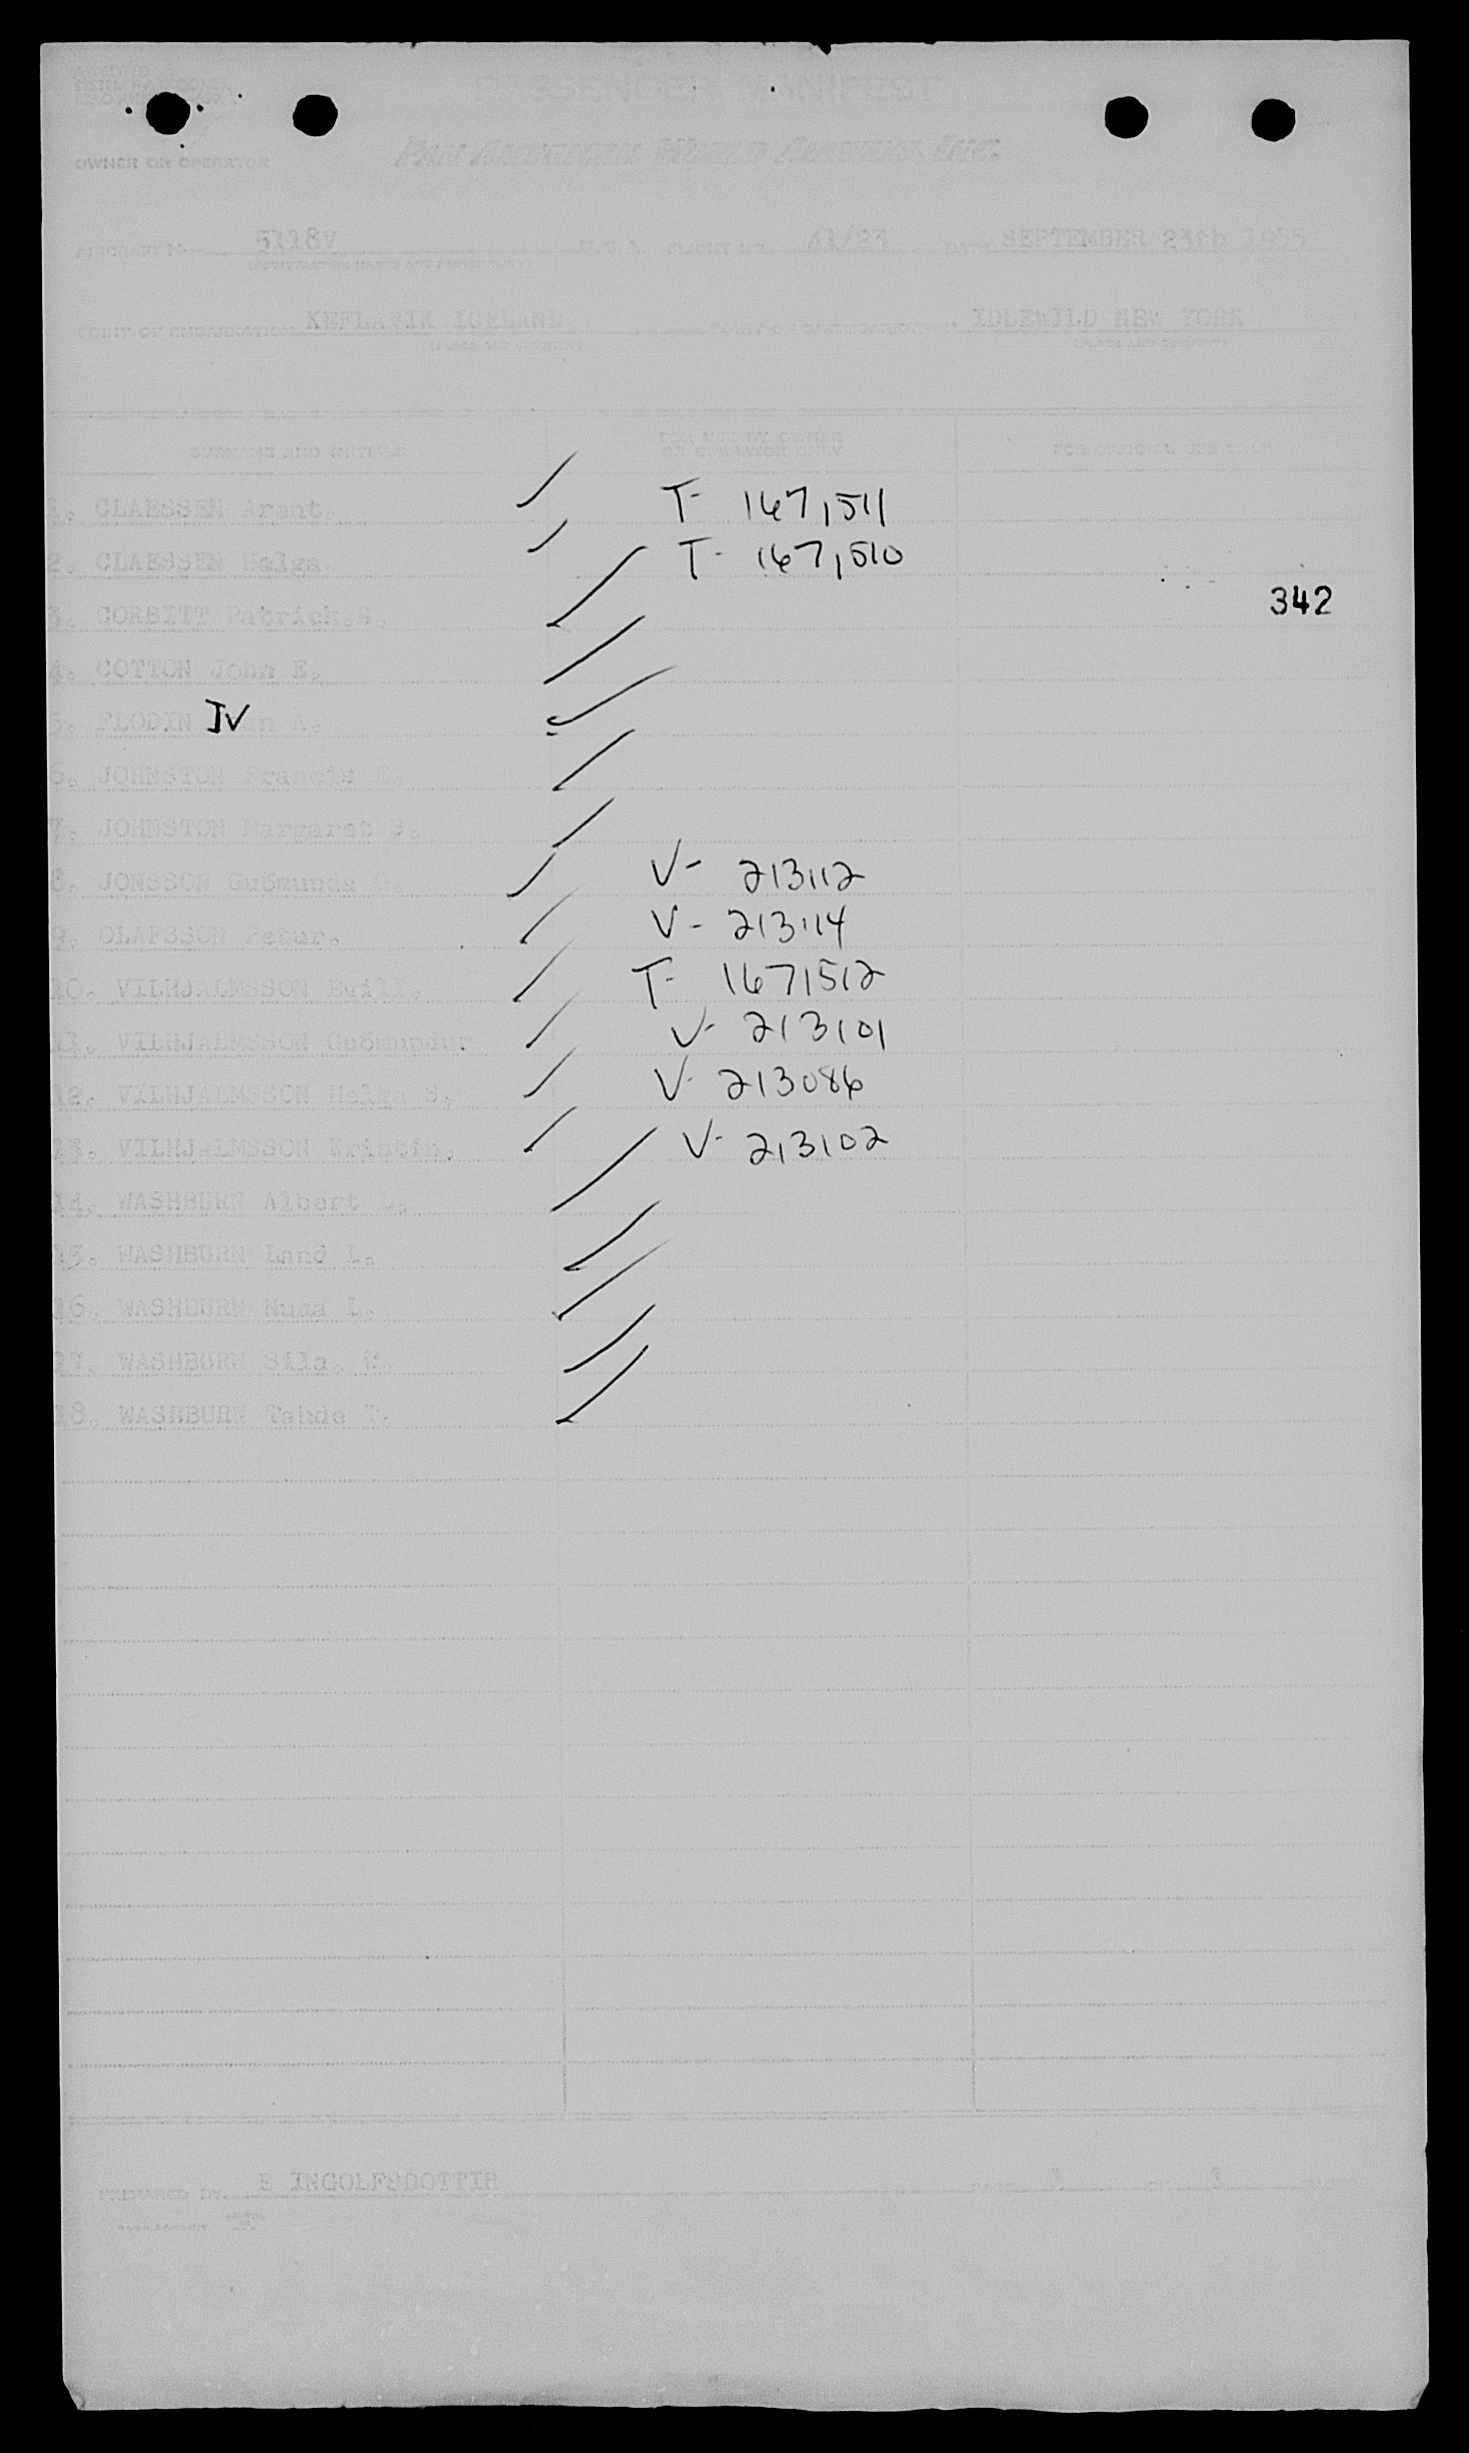 PASSENGER MANIFEST
OWNER OR OPERATOR Pan American World Airways, Inc.
AIRCRAFT 5118V U.S.A. FLIGHT NO. 61/23 DATE SEPTEMBER 23th 1955
POINT OF EMBARKATION KEFLAVIK ICELAND POINT OF DISEMBARKATION IDLEWILD NEW YORK
(PLACE AND COUNTRY) (PLACE AND COUNTRY)
SURNAME AND INITIALS FOR USE BY OWNER OR OPERATOR ONLY FOR OFFICIAL USE ONLY
1. CLAESSEN Arent. T- 167,511
2. CLAESSEN Helga T- 167,510
342
3. CORBITT Patrick
4. COTTON John E.
5. FLODIN IV A.
6. JOHNSTON Francis
7. JOHNSTON Margaret
8. JONSSON Guðmunda V- 213112
9. OLAFSSON Petur. V- 213114
10. VILHJALMSSON T- 1671512
11. VILHJALMSSON Guðmundur V- 213101
12. VILHJALMSSON Helga S. V- 213086
13. VILHJALMSSON Kristin. V- 213102
14. WASHBURN Albert L.
15. WASHBURN Land L.
16. WASHBURN L.
17. WASHBURN
18. WASHBURN Tahde T.
PREPARED BY E INGOLFSDOTTIR